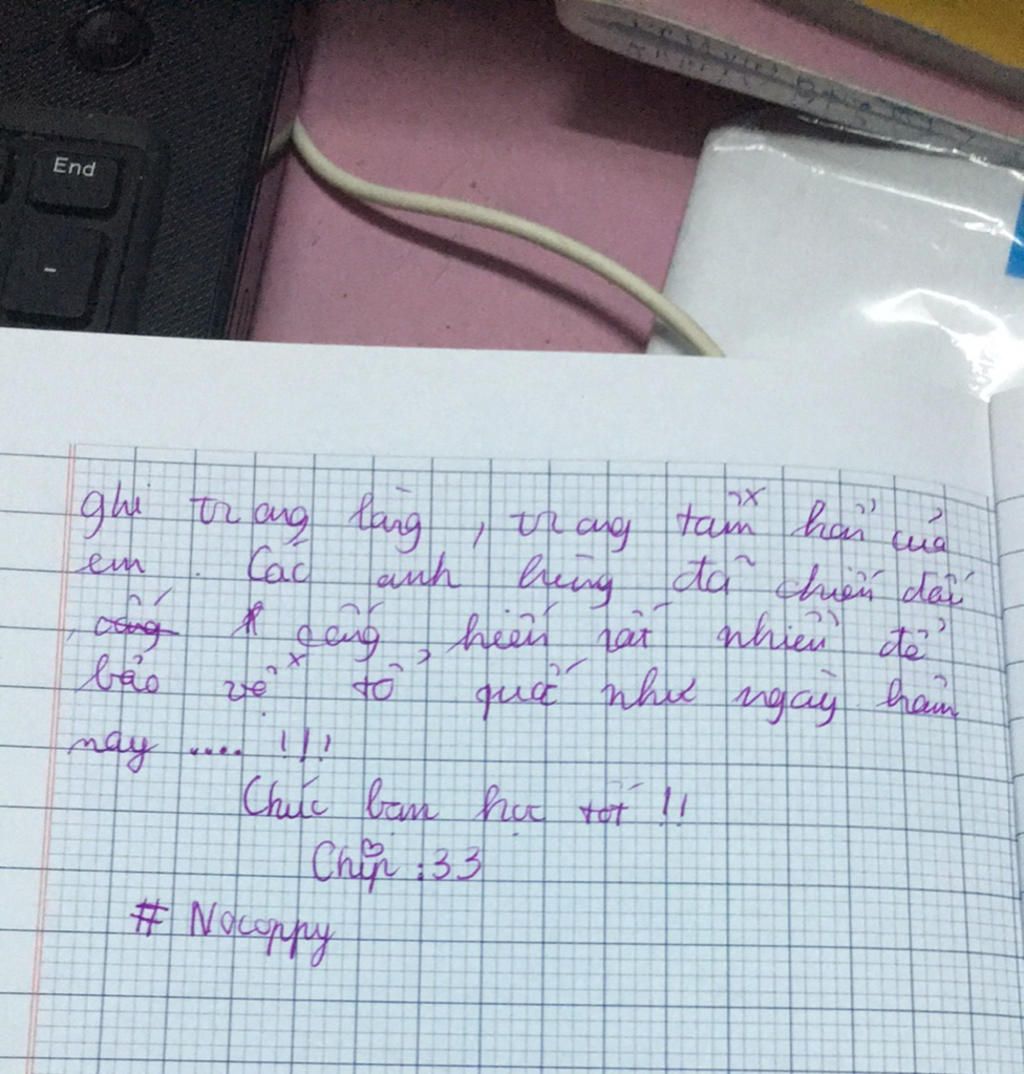 End
-
ghi trong lòng, trong tâm hồn của
em. Các anh hùng đã chiến đấu
, cống gắng, hiến rất nhiều để
bảo vệ tổ quốc như ngày hôm
nay .... !!!
Chúc bạn học tốt !!
Chip :33
# Nocoppy